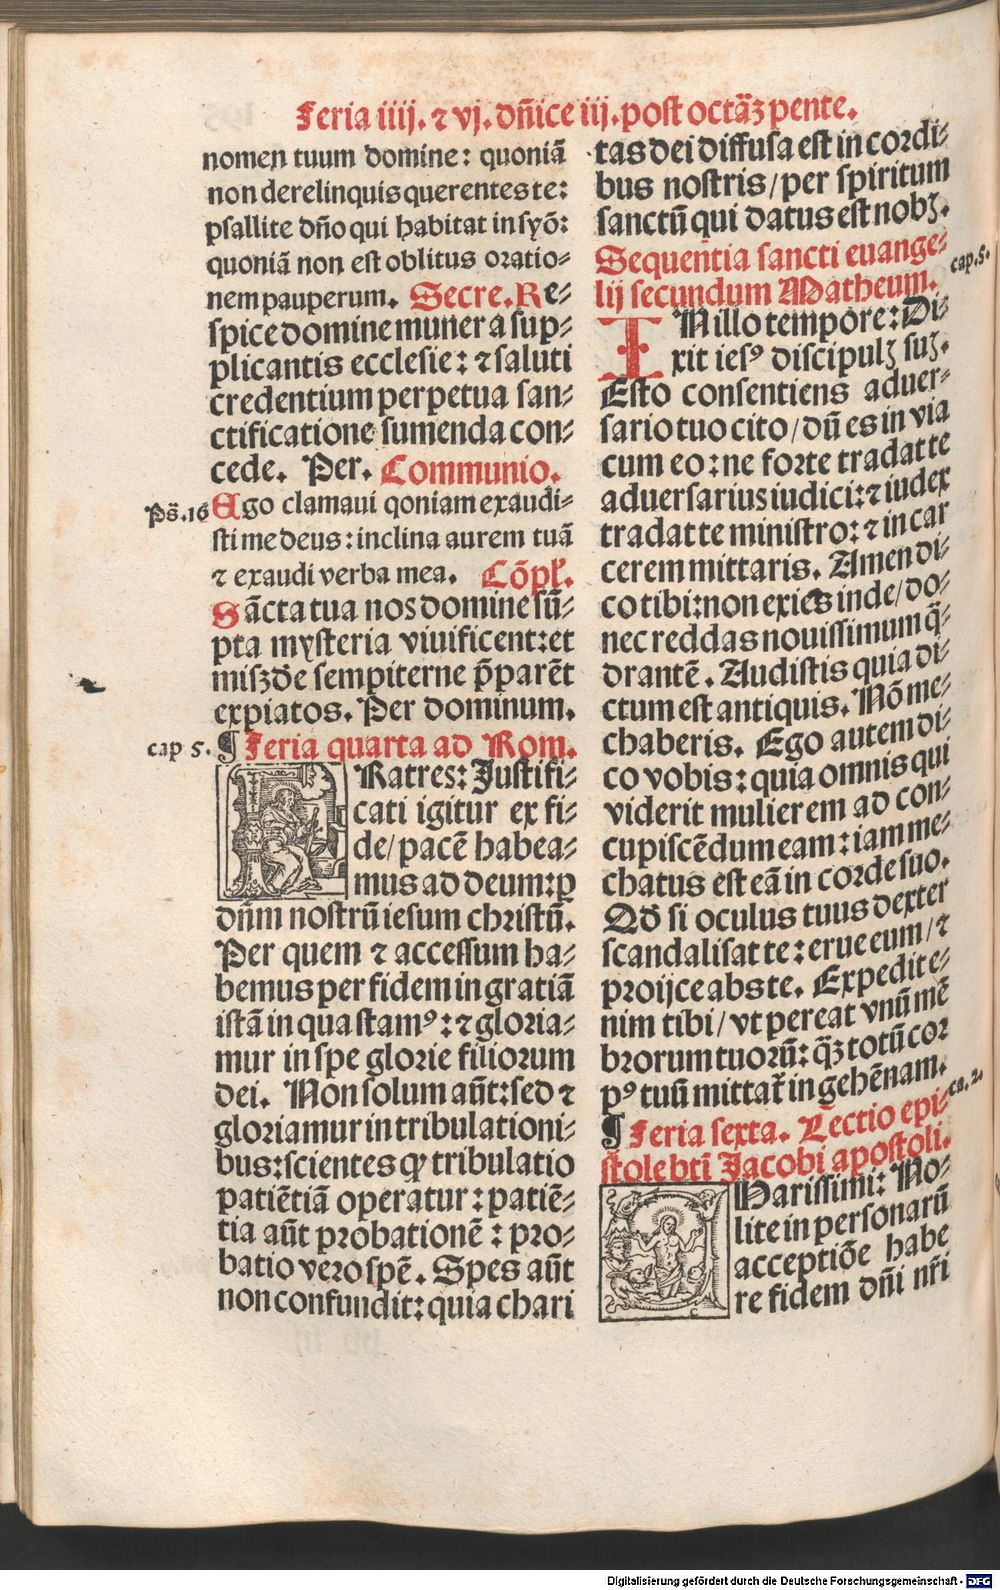 Feria iiij. ⁊ vj. dn̄ice iij. post octaꝫ̄ pente.
nomen tuum domine: quoniā
non derelinquis querentes te:
psallite dn̄o qui habitat in syō:
quoniā non est oblitus oratio⸗
nem pauperum. Secre. Re⸗
spice domine munera sup⸗
plicantis ecclesie: ⁊ saluti
credentium perpetua san⸗
ctificatione sumenda con⸗
cede. Per. Communio.
Ps̄. 16 Ego clamaui qoniam exaudi⸗
sti me deus: inclina aurem tuā
⁊ exaudi verba mea. Cōpł.
Sācta tua nos domine sū⸗
pta mysteria viuificent: et
misꝫd̄e sempiterne p̄parēt
expiatos. Per dominum.
cap 5. ¶ Feria quarta ad Rom.
FRatres: Justifi⸗
cati igitur ex fi⸗
de/ pacē habea⸗
mus ad deum: ꝑ
dn̄m nostrū iesum christū.
Per quem ⁊ accessum ha⸗
bemus per fidem in gratiā
istā in qua stamꝰ: ⁊ gloria⸗
mur in spe glorie filiorum
dei. Non solum aūt: sed ⁊
gloriamur in tribulationi⸗
bus: scientes ꝙ tribulatio
patiētiā operatur: patiē⸗
tia aūt probationē: pro⸗
batio vero spē. Spes aūt
non confundit: quia chari
tas dei diffusa est in cordi⸗
bus nostris/ per spiritum
sanctū qui datus est nobꝫ.
Sequentia sancti euange⸗
lij secundum Matheum. cap. 5.
IN illo tempore: Di⸗
xit iesꝰ discipulꝫ suꝫ.
Esto consentiens aduer⸗
sario tuo cito/ dū es in via
cum eo: ne forte tradat te
aduersarius iudici: ⁊ iudex
tradat te ministro: ⁊ in car
cerem mittaris. Amen di⸗
co tibi: non exies inde/ do⸗
nec reddas nouissimum q̄⸗
drantē. Audistis quia di⸗
ctum est antiquis. Nō me⸗
chaberis. Ego autem di⸗
co vobis: quia omnis qui
viderit mulierem ad con⸗
cupiscēdum eam: iam me⸗
chatus est eā in corde suo.
Qd̄ si oculus tuus dexter
scandalisat te: erue eum/ ⁊
proijce abs te. Expedit e⸗
nim tibi/ vt pereat vnū mē
brorum tuorū: q̄ꝫ totū cor
pꝰ tuū mittat̄ in gehēnam.
¶ Feria sexta. Lectio epi⸗ ca. 2.
stole bt̄i Jacobi apostoli.
CHarissimi: No⸗
lite in personarū
acceptiōe habe
re fidem dn̄i nr̄i
Digitalisierung gefördert durch die Deutsche Forschungsgemeinschaft - DFG